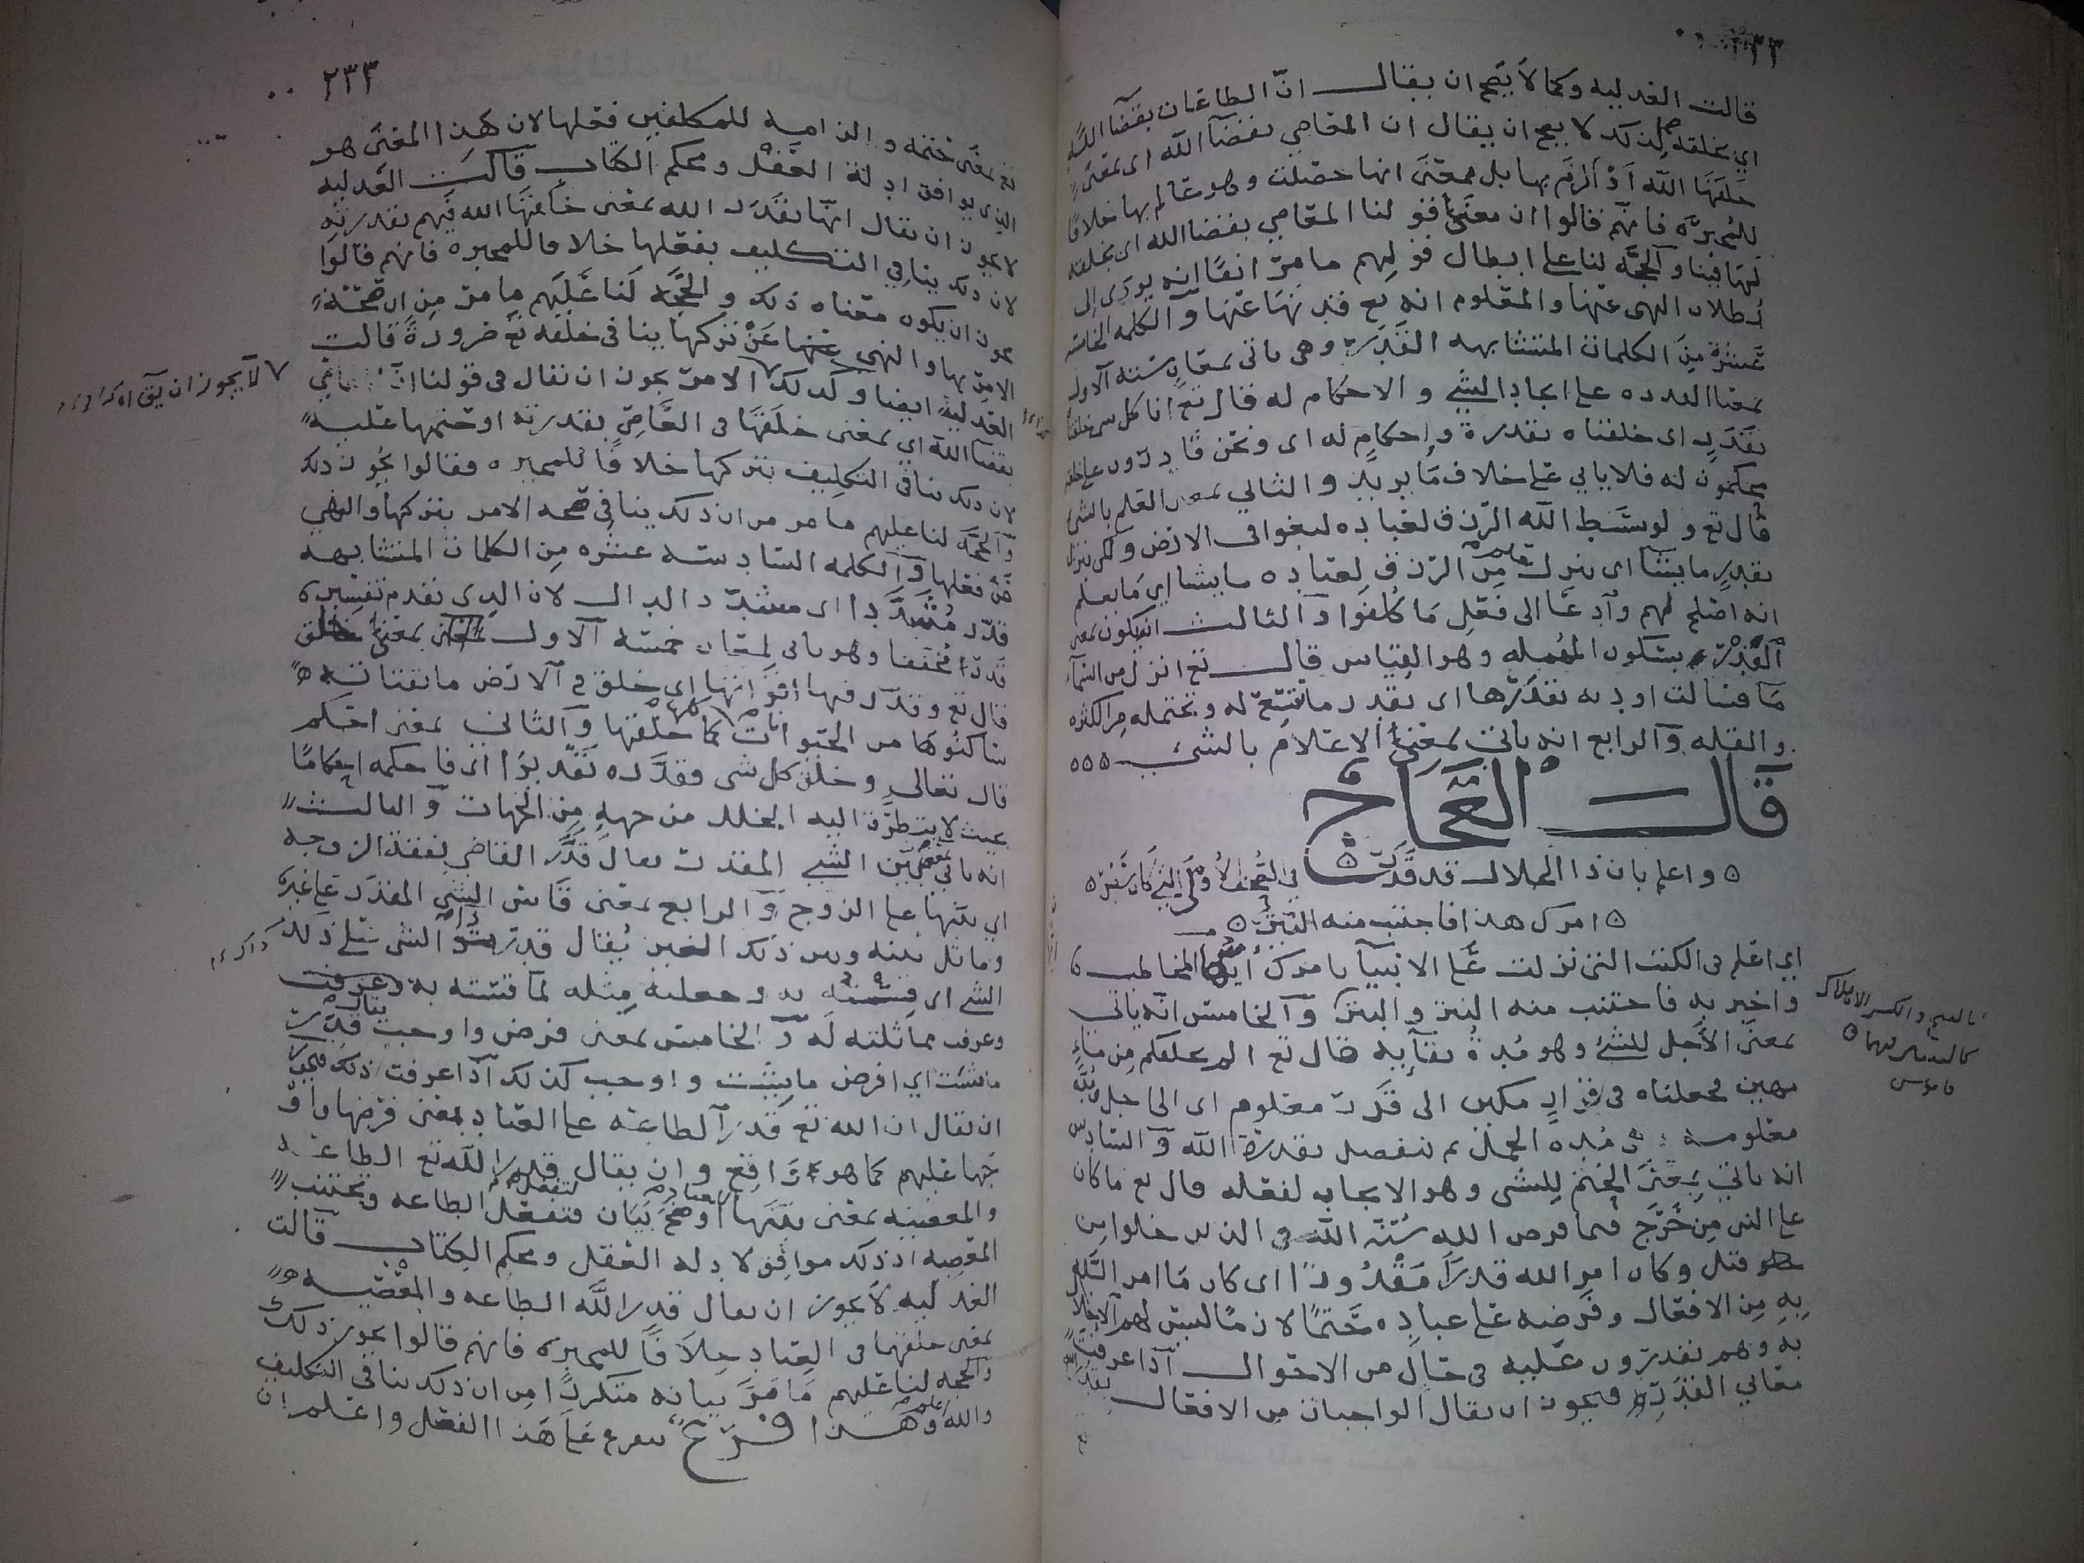 قالت العدليه وكما لا يصح ان يقال انّ الطاعات بقضا الله
اي بخلقه كذلك لا يصح ان يقال ان المعاصي بقضآ الله اي بمعنى
خلقها الله اذ ألزم بها بل بمعنى انها حصلت وهو عالم بها خلافًا
للمجبرّه فانهم قالوا ان معنى قولنا المعاصي بقضا الله اي بخلقه
لها فينا والحجّه لنا على ابطال قولهم ما مرّ انفًا انه يودي الى
بطلان النهي عنها والمعلوم انه تع قد نهى عنها والكلمه الخامسه
عشرة من الكلمات المتشابهه القدر وهي ياتي بمعانٍ ستته الاول
بمعنا القدره على ايجاد الشي والاحكام له قال تع انا كل شي خلقنا
بقدر اي خلقناه بقدرة وإحكام له اي ونحن قادرون على خلقه
محكمون له فلا ياتي على خلاف ما يريد والثاني بمعنى العلم بالشي
قال تع ولو بسط الله الرزق لعباده لبغوا في الارض ولكن ينزل
بقدرٍ ما يشآ اي ينزل من الرزق لعباده ما يشا اي ما يعلم
انه اصلح لهم وأدعا الى فعل ما كلفوا والثالث ان يكون بمعنى
القدْر بسكون المهمله وهو القياس قال تع انزل من السمآء
مآ فسالت اوديه بقدرها اي بقدر ما تتسع له وتحتمله من الكثره
والقله والرابع انه ياتي بمعنى الاعلام بالشي
قال العجاج
واعلم بان ذا الجلال قد قدر في الصحف الاولى التي كان سطر
امرك هذا فاجتنب منه التبر
اي اعلم في الكتب التي نزلت على الانبيآ بامرك أيها المخاطب
واخبر به فاجتنب منه التبر والتبر والخامس انه ياتي
بمعنى الأجل للشئ وهو مُدةُ بقآيه قال تع الم نخلقكم من مآءٍ
مهين فجعلناه في قرارٍ مكين الى قدر معلوم اي الى اجل
معلومه مده الحمل ثم تنفصل بقدرة الله والسادس
انه ياتي بمعنى الحتم للشي وهو الايجاب لفعله قال تع ما كان
على النبي من حَرَج فيما فرض الله سُنّة الله في الذين خلوا من
قبل وكان امر الله قدرًا مقدُورًا اي كان ما امر الله
به من الافعال وفرضه على عباده حَتمًا لازمًا ليس لهم الاخلال
به وهم يقدرون عليه في حال من الاحوال اذا عرفت
معاني القدر فيجوز ان يقال الواجبات من الافعال بقدر الله
٢٣٣
تع بمعنى حتمه والزامه للمكلفين فعلها لان هذا المعنى هو
الذي يوافق ادلة العقل ومحكم الكتاب قالت العدليه
لا يجوز ان يقال انها بقدر الله بمعنى خلقها الله فيهم بقدرته
لان ذلك ينافي التكليف بفعلها خلافا للمجبره فانهم قالوا
يجوز ان يكون معناه ذلك والحجّه لنا عليهم ما مر من ان صحة
الامر بها والنهي عن تركها ينافي خلقه تع ضرورةً قالت
العدلية ايضا وكذلك الامر يجوز ان يقال في قولنا
بقضآ الله اي بمعنى خلقها في العاصي بقدرته او حتمها عليه
لان ذلك ينافي التكليف بتركها خلافًا للمجبره فقالوا يجوز ذلك
والحجّه لنا عليهم ما مر من ان ذلك ينافي صحه الامر بتركها والنهي
عن فعلها والكلمه السادسه عشره من الكلمات المتشابهه
قدّر مُشدّدا اي مشدّد الدال لان الذي تقدم تفسيره
قدر مخففا وهو ياتي لمعان خمسه الاول بمعنى خلق
قال تع وقدّر فيها اقواتها اي خلق في الارض ما يقتاته
ساكنوها من الحيوانات كما خلقها والثاني بمعنى احكم
قال تعالى وخلق كل شي فقدّره تقديرًا اي فاحكمه احكامًا
بحيث لا يتطرّق اليه الخلل من جهه من الجهات والثالث
انه ياتي بمعنى بيّن الشي المقدر يقال قدّر القاضي نفقة الزوجه
اي بيّنها على الزوج والرابع بمعنى قاس الشي المقدر على غيره
وماثل بينه وبين ذلك الغير يُقال قدّر الشي على ذلك
الشي اي قسته به وجعلته مثله لما قسته به
وعرفت مماثلته له والخامس بمعنى فرض واوجب يقال قدّرت
ما شئت اي افرض ما شئت واوجب كذلك اذا عرفت ذلك فيجوز
ان يقال ان الله تع قدّر الطاعة على العباد بمعنى فرضها واو
جبها عليهم كما هو وَاقع وان يقال قدر الله تع الطاعه
والمعصيه بمعنى بيّنها اوضح بَيان لتفعل الطاعه وتجتنب
المعصيه اذ ذلك موافق لادله العقل ومحكم الكتاب قالت
العدليه لا يجوز ان يقال قدر الله الطاعه والمعصيه
بمعنى خلقهما في العباد خِلافًا للمجبره فانهم قالوا يجوز ذلك
والحجه لنا عليهم ما مَرّ بيانه متكررًا من ان ذلك ينافي التكليف
والله اعلم وهذا فرع يتفرع على هذا الفصل واعلم ان
لا يجوز ان يق